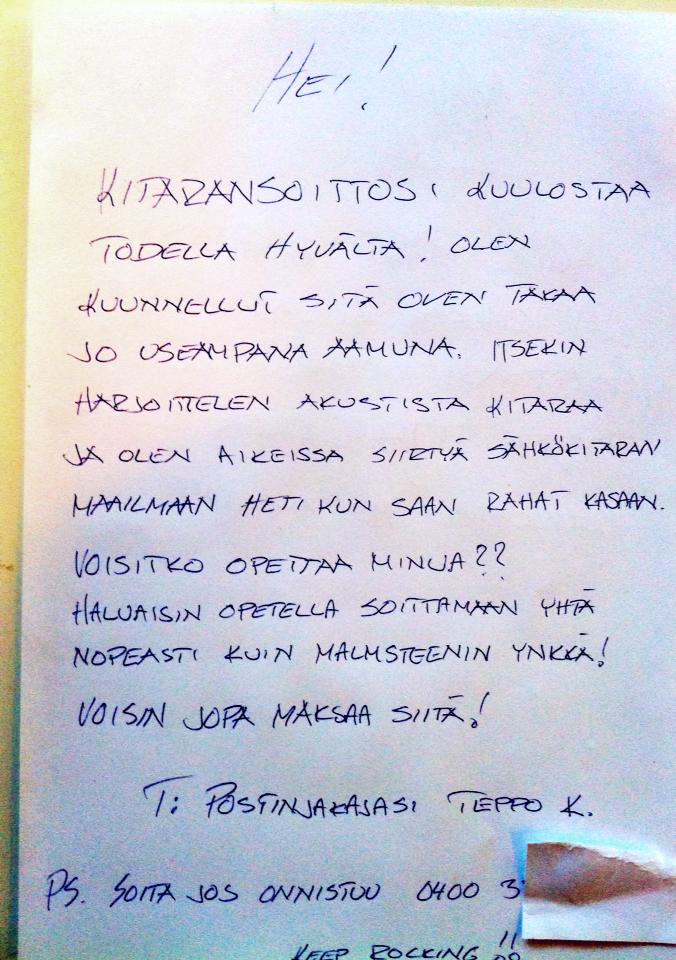 HEI!
KITARANSOITTOSI KUULOSTAA
TODELLA HYVÄLTÄ! OLEN
KUUNNELLUT SITÄ OVEN TAKAA
JO USEAMPANA AAMUNA. ITSEKIN
HARJOITTELEN AKUSTISTA KITARAA
JA OLEN AIKEISSA SIIRTYÄ SÄHKÖKITARAN
MAAILMAAN HETI KUN SAAN RAHAT KASAAN.
VOISITKO OPETTAA MINUA??
HALUAISIN OPETELLA SOITTAMAAN YHTÄ
NOPEASTI KUIN MALMSTEENIN YNKKÄ!
VOISIN JOPA MAKSAA SIITÄ!
T: POSTINJAKAJASI TEPPO K.
PS. SOITA JOS ONNISTUU 0400 3
KEEP ROCKING !!